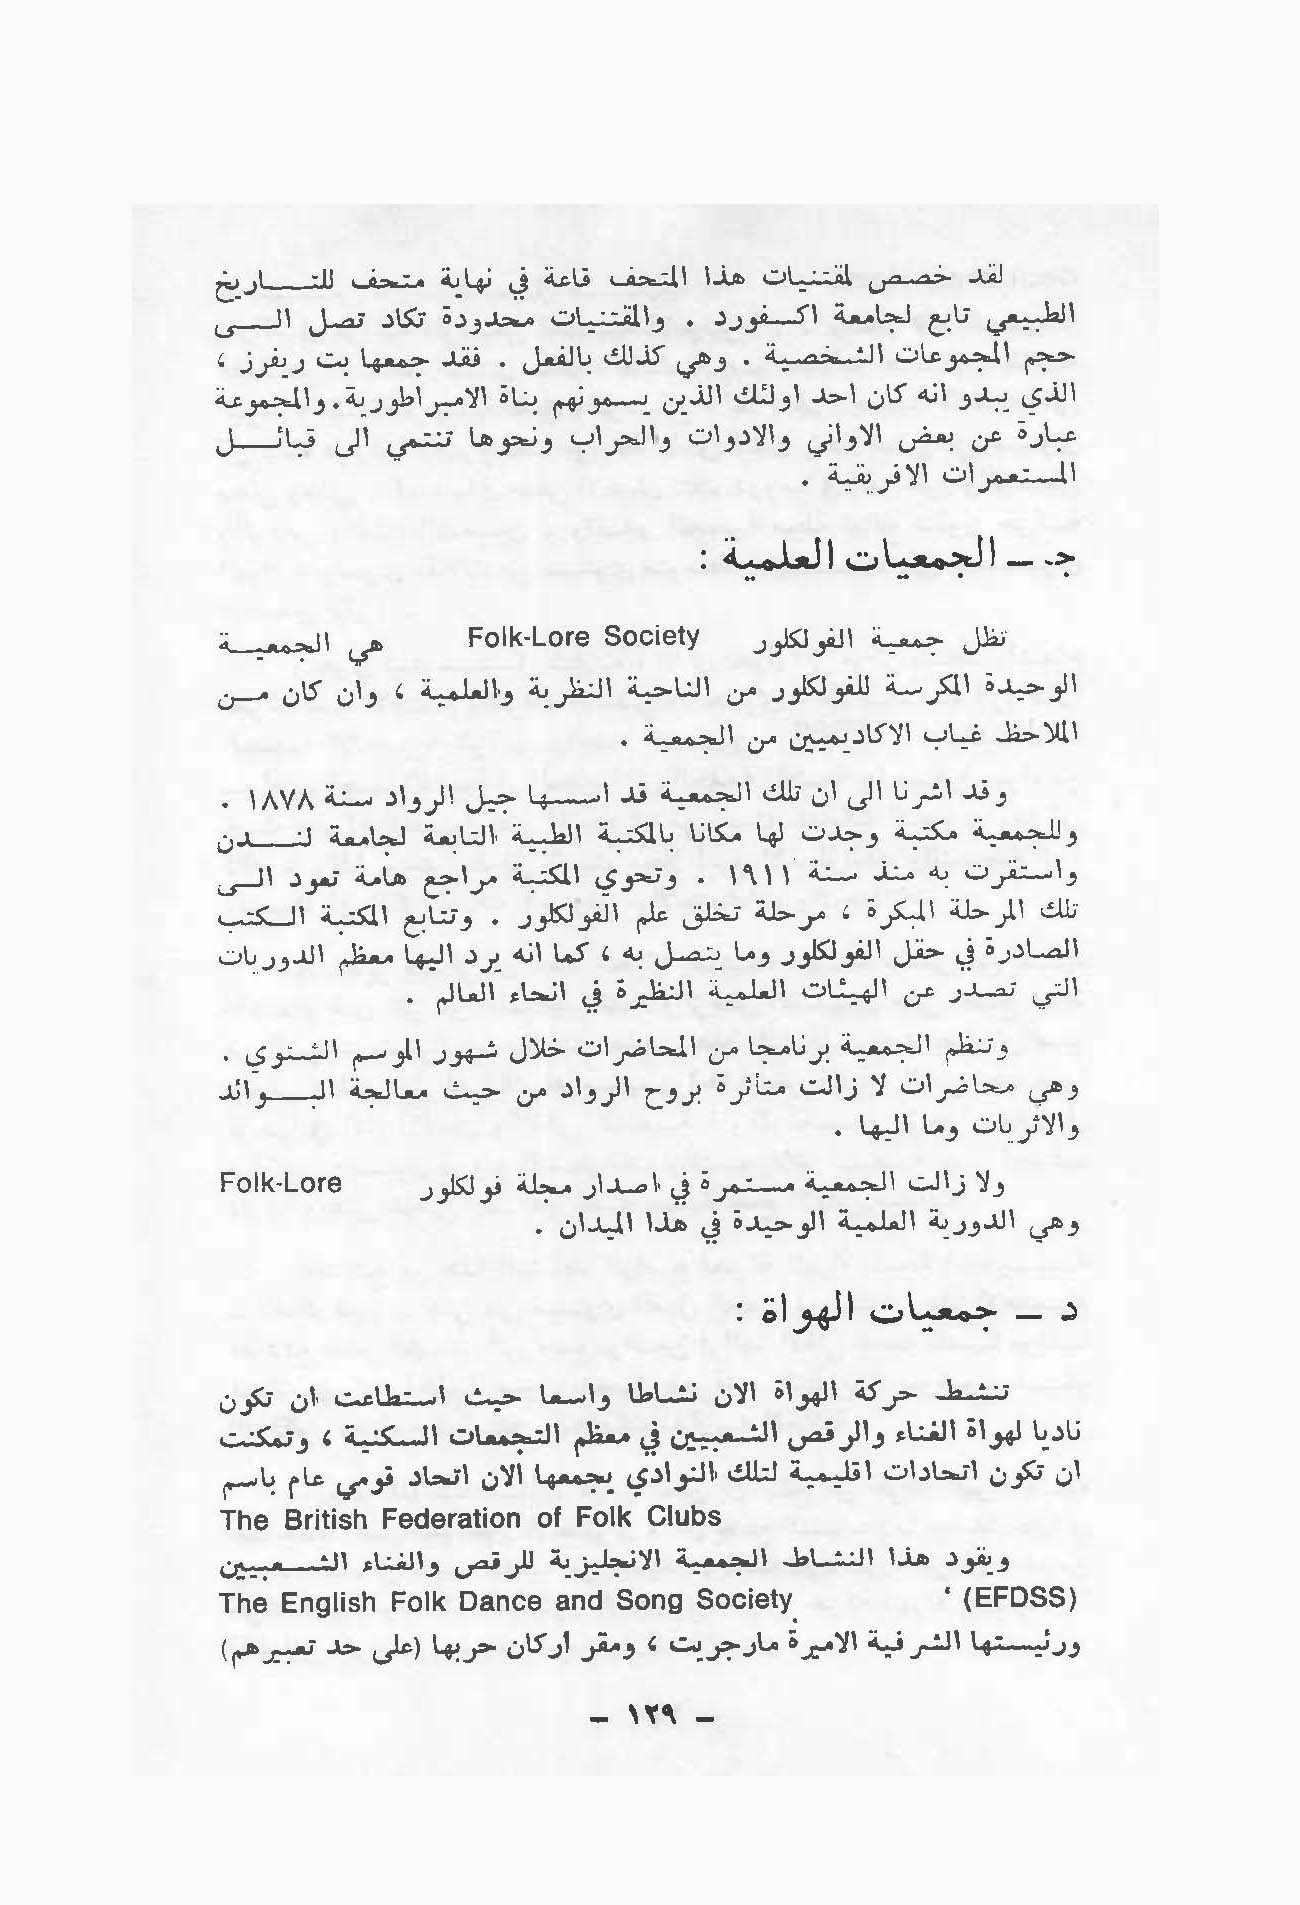 لقد خصص لمقتنيات هذا المتحف قاعة في نهاية متحف للتــاريخ
الطبيعي تابع لجامعة اكسفورد . والمقتنيات محدودة تكاد تصل الــى
حجم المجموعات الشخصية . وهي كذلك بالفعل . فقد جمعها بت ريفرز ،
الذي يبدو انه كان احد اولئك الذين يسمونهم بناة الامبراطورية.والمجموعة
عبارة عن بعض الاواني والادوات والحراب ونحوها تنتمي الى قبائــل
المستعمرات الافريقية .
جـ ـ الجمعيات العلمية :
تظل جمعية الفولكلور Folk-Lore Society هي الجمعيــة
الوحيدة المكرسة للفولكلور من الناحية النظرية والعلمية ، وان كان مــن
الملاحظ غياب الاكاديميين من الجمعية .
وقد اشرنا الى ان تلك الجمعية قد اسسها جيل الرواد سنة ١٨٧٨ .
وللجمعية مكتبة وجدت لها مكانا بالمكتبة الطبية التابعة لجامعة لنــدن
واستقرت به منذ سنة ١٩١١ . وتحوي المكتبة مراجع هامة تعود الــى
تلك المرحلة المبكرة ، مرحلة تخلق علم الفولكلور . وتتابع المكتبة الــكتب
الصادرة في حقل الفولكلور وما يتصل به ، كما انه يرد اليها معظم الدوريات
التي تصدر عن الهيئات العلمية النظيرة في انحاء العالم .
وتنظم الجمعية برنامجا من المحاضرات خلال شهور الموسم الشتوي .
وهي محاضرات لا زالت متأثرة بروح الرواد من حيث معالجة البــوائد
والاثريات وما اليها .
ولا زالت الجمعية مستمرة في اصدار مجلة فولكلور Folk-Lore
وهي الدورية العلمية الوحيدة في هذا الميدان .
د ـ جمعيات الهواة :
تنشط حركة الهواة الان نشاطا واسعا حيث استطاعت ان تكون
ناديا لهواة الغناء والرقص الشعبيين في معظم التجمعات السكنية ، وتمكنت
ان تكون اتحادات اقليمية لتلك النوادي يجمعها الان اتحاد قومي عام باسم
The British Federation of Folk Clubs
ويقود هذا النشاط الجمعية الانجليزية للرقص والغناء الشــعبيين
The English Folk Dance and Song Society ، (EFDSS)
ورئيستها الشرفية الاميرة مارجريت ، ومقر أركان حربها (على حد تعبيرهم)
ـ ١٢٩ ـ